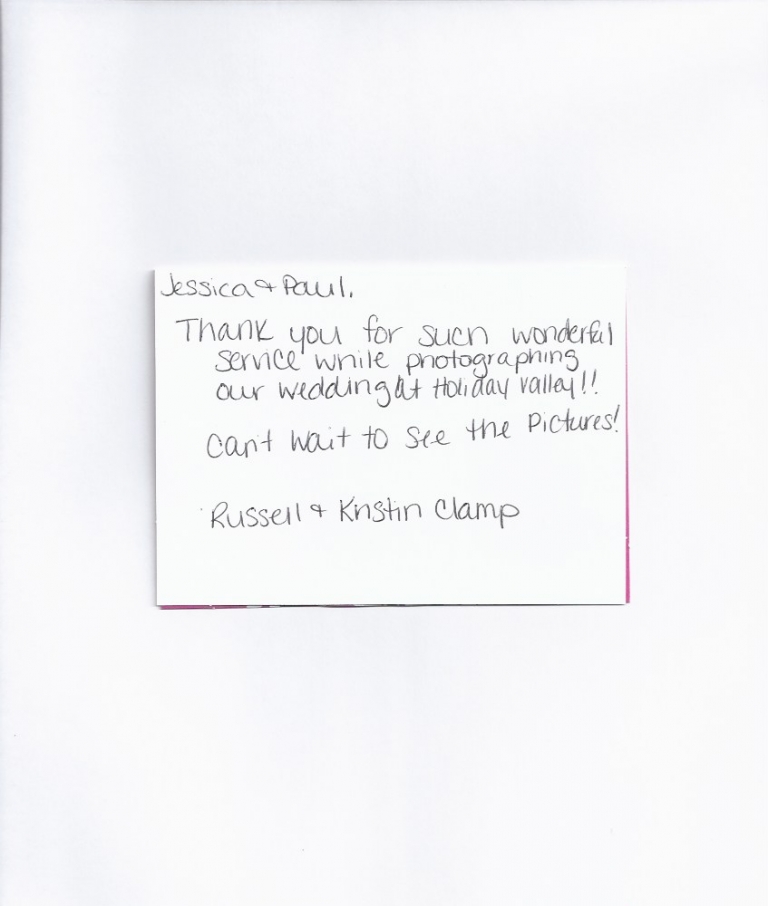 Jessica & Paul,
Thank you for such wonderful
service while photographing
our wedding at Holiday Valley!!
Can't wait to see the Pictures!
Russell & Kristin Clamp